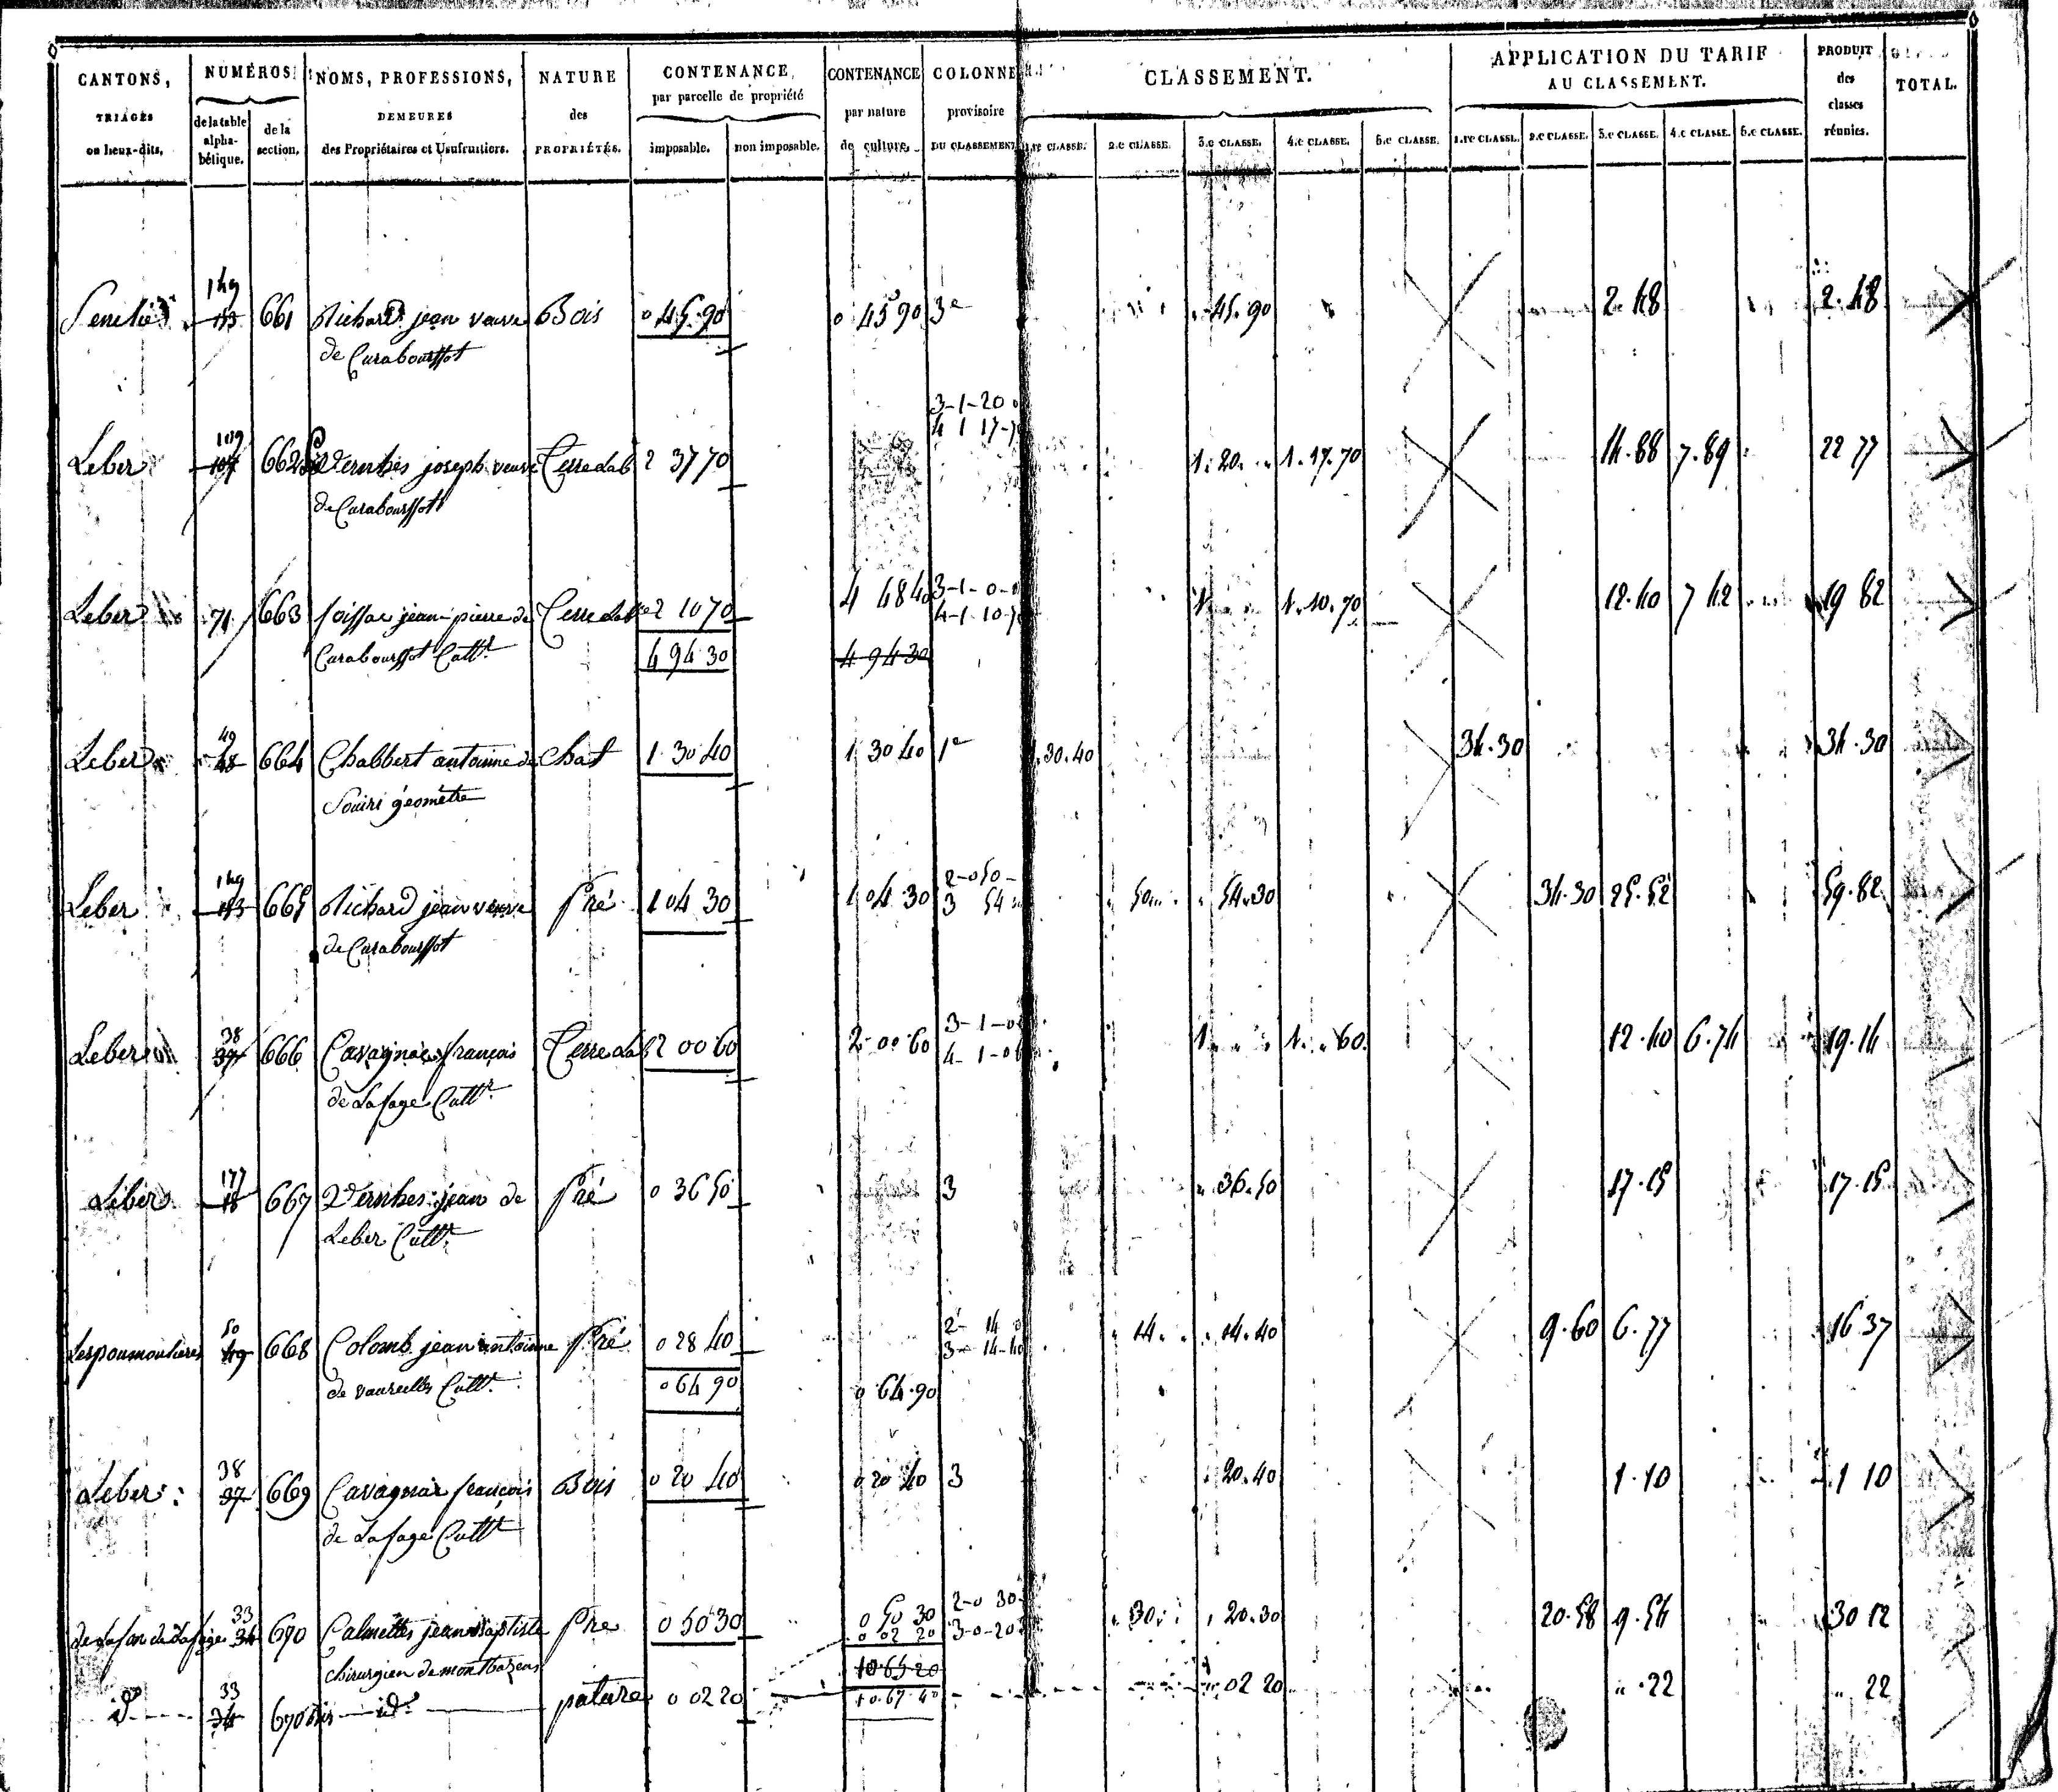 CANTONS, TRIAGES ou lieux-dits. NUMÉROS de la table alphabétique. de la section. NOMS, PROFESSIONS, DEMEURES des Propriétaires et Usufruitiers. NATURE des PROPRIÉTÉS. CONTENANCE, par parcelle de propriété imposable. non imposable. CONTENANCE par nature de culture. COLONNE provisoire DU CLASSEMENT CLASSEMENT. 1.re CLASSE. 2.e CLASSE. 3.e CLASSE. 4.e CLASSE. 5.e CLASSE. APPLICATION DU TARIF AU CLASSEMENT. 1.re CLASSE. 2.e CLASSE. 3.e CLASSE. 4.e CLASSE. 5.e CLASSE. PRODUIT des classes réunies. TOTAL.
149
661 Richard jean veuve Bois 0 45 90 0 45 90 3e 45.90 2.48 2.48
de Carabourssot
3-1-20
109 4 1 17-7
Leber 662 Vernhes joseph veuve Terre lab 2 37 70 1.20 1.17.70 14.88 7.89 22 77
de Carabourssot
Leber 71 663 foissac jean-pierre de Terre lab 2 10 70 4 48 40 3-1-0-0 1 1.10.70 12.40 7 42 19 82
4-1-10-7
Carabourssot Cultr 4 94 30 4 94 30
49
Leber 48 664 Chabbert antoinne de Chat 1 30 40 1 30 40 1e 1.30.40 34.30 34.30
Souiri géomètre
149 2-0 50-
Leber 665 Richard jean veuve Pré 1 04 30 1 04 30 3 54 50 54.30 34.30 25.52 59.82
de Carabourssot
38 3-1-0
Leber 37 666 Cavagnac françois Terre lab 2 00 60 2 00 60 4-1-0 6 1 1 60 12.40 6.74 19.14
de Lafage Cultr
177
Leber 18 667 Vernhes jean de Pré 0 36 50 3 36.50 17.15 17.15
Leber Cultr
50 2- 14 0
Lespoumoulieres 49 668 Colomb jean antoinne Pré 0 28 40 3- 14-40 14 14.40 9.60 6.77 16 37
de vaureilles Cultr 0 64 90 0 64.90
38
Leber 37 669 Cavagnac françois Bois 0 20 40 0 20 40 3 20.40 1.10 1 10
de Lafage Cultr
33 2-0 30
34 670 Calmettes jean Baptiste Pré 0 50 30 0 50 30 3-0-20 30 20.30 20.58 9.54 30 12
0 02 20
chirurgien de montbazens 10 65 20
33
id 34 670 bis id pature 0 02 20 10.67.40 02 20 .22 22